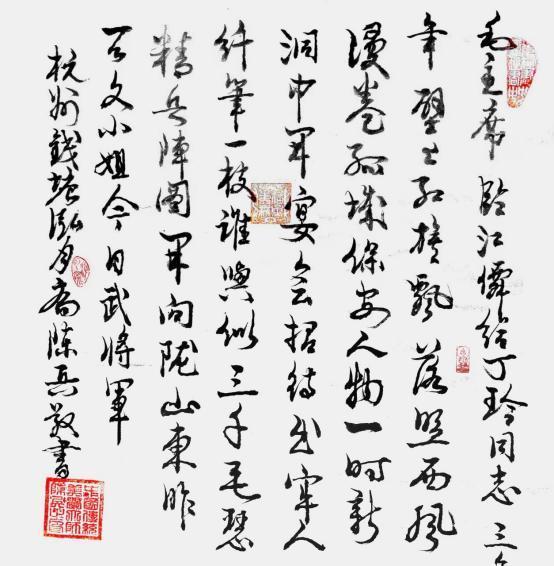 毛主席臨江僊給丁玲同志三
年壁上紅旗飄落照西風
漫卷孤城保安人物一時新
洞中開宴会招待出牢人
纤筆一枝誰與似三千毛瑟
精兵陣圖開向陇山東昨
天文小姐今日武將軍
杭州錢塘泓月斋陳兵敬書